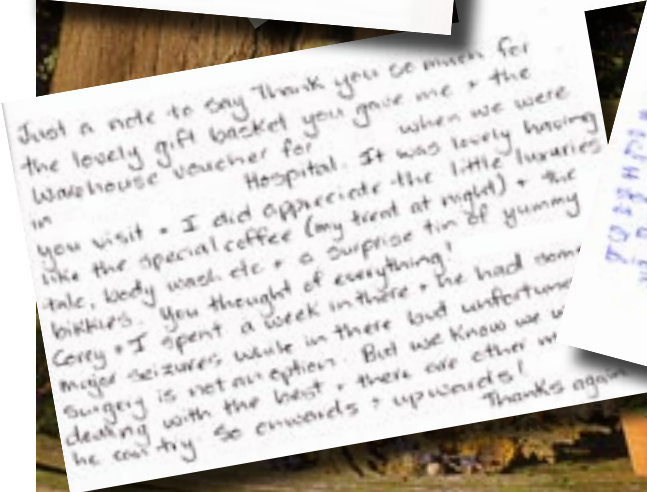 Just a note to say Thank you so much for
the lovely gift basket you gave me + the
Warehouse voucher for when we were
in Hospital. It was lovely having
you visit + I did appreciate the little luxuries
like the special coffee (my treat at night) + the
talc, body wash etc + a surprise tin of yummy
bikkies. You thought of everything!
Corey + I spent a week in there + he had some
major seizures while in there but unfortuna
surgery is not an option. But we know we w
dealing with the best + there are other m
he can try. So onwards + upwards!
Thanks again